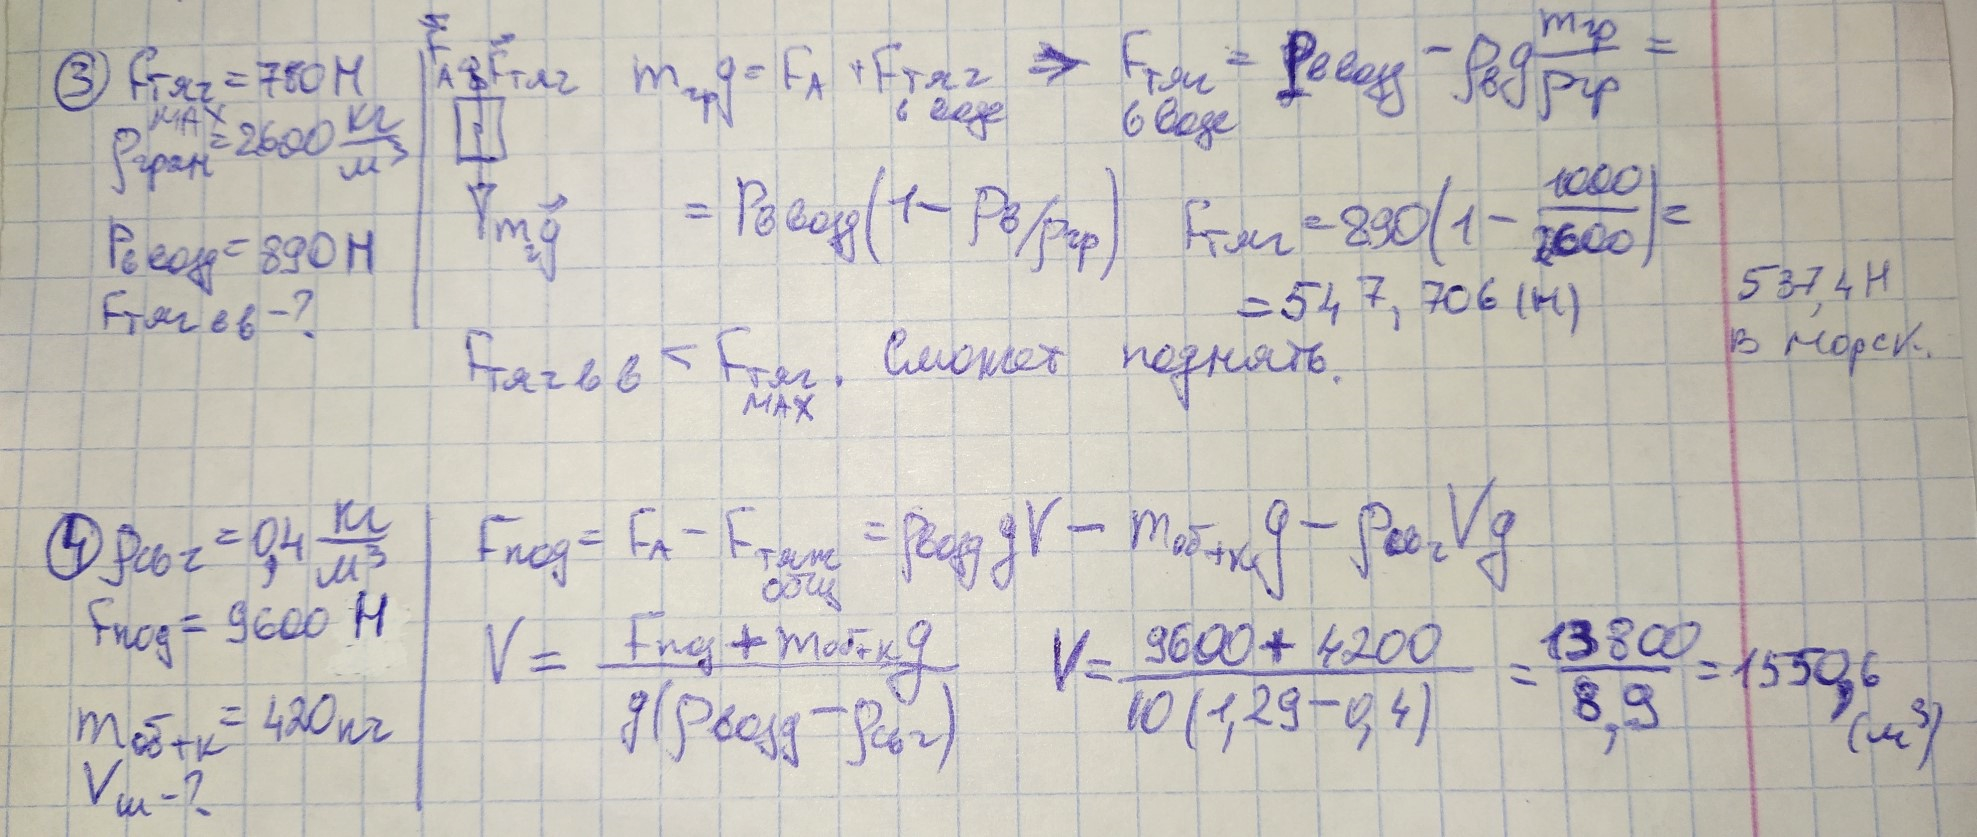 ③ Fтяг MAX = 780 Н
ρгран = 2600 кг/м³
Pв возд = 890 Н
Fтяг в в - ?
F⃗A F⃗тяг
mг g⃗
mгр g = FA + Fтяг в воде ⇒ Fтяг в воде = Pв возд - ρв g mгр/ρгр =
= Pв возд (1 - ρв/ρгр) Fтяг = 890 (1 - 1000/2600) =
= 547,706 (Н)
537,4 Н
в морск.
Fтяг в в < Fтяг MAX. Сможет поднять.
④ ρсв г = 0,4 кг/м³
Fпод = 9600 Н
mоб+к = 420 кг
Vш - ?
Fпод = FA - Fтяж общ = ρвозд gV - mоб+к g - ρсв г Vg
V = (Fпод + mоб+к g)/(g(ρвозд - ρсв г)) V = (9600 + 4200)/(10(1,29 - 0,4)) = 13800/8,9 = 1550,6 (м³)